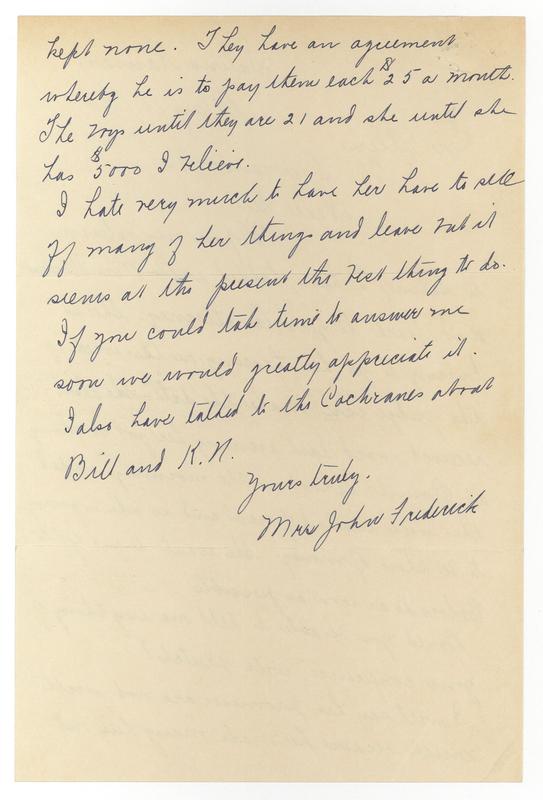 kept none. They have an agreement
whereby he is to pay them each $25 a month.
The boys until they are 21 and she until she
has $5000 I believe.
I hate very much to have her have to sell
off many of her things and leave but it
seems at the present the best thing to do.
If you could take time to answer me
soon we would greatly appreciate it.
I also have talked to the Cochranes about
Bill and K.N.
Yours truly.
Mrs John Frederick